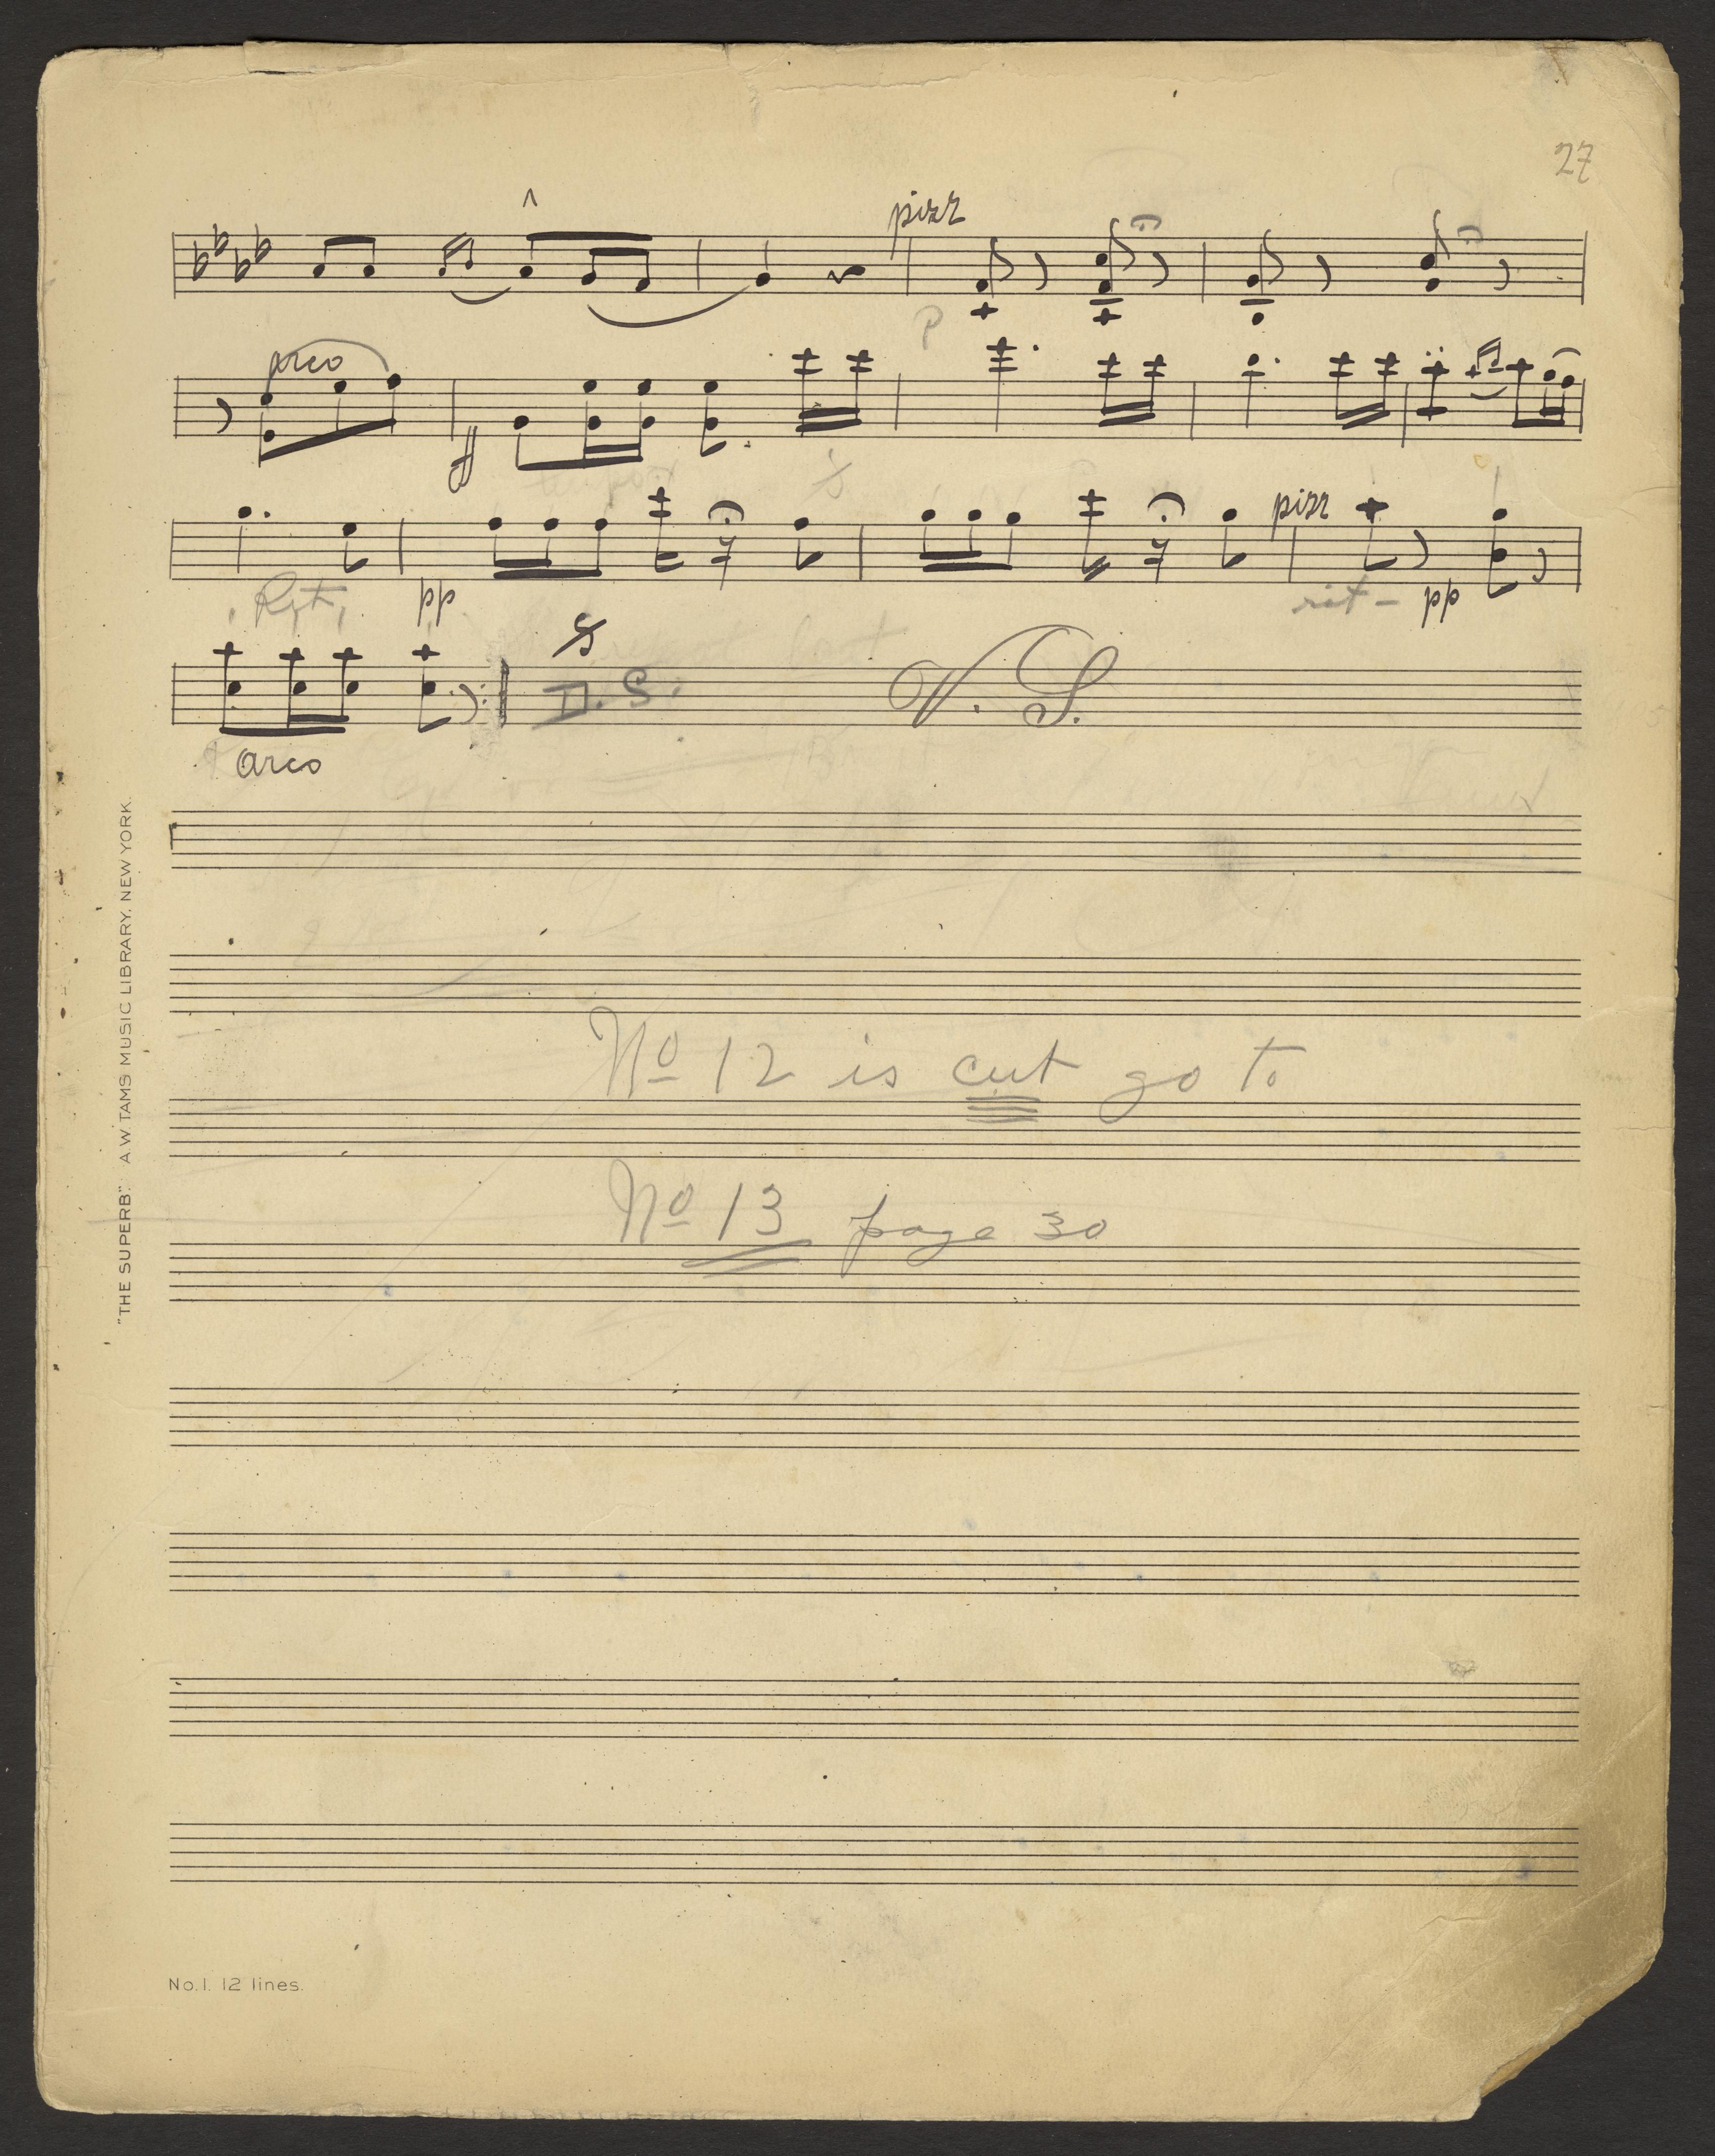 27
pizz
p
arco
ff
pizz
pp
rit - pp
D. S. V. S.
arco
No 12 is cut go to
No 13 page 30
"THE SUPERB." A.W. TAMS MUSIC LIBRARY, NEW YORK.
No. 1. 12 lines.